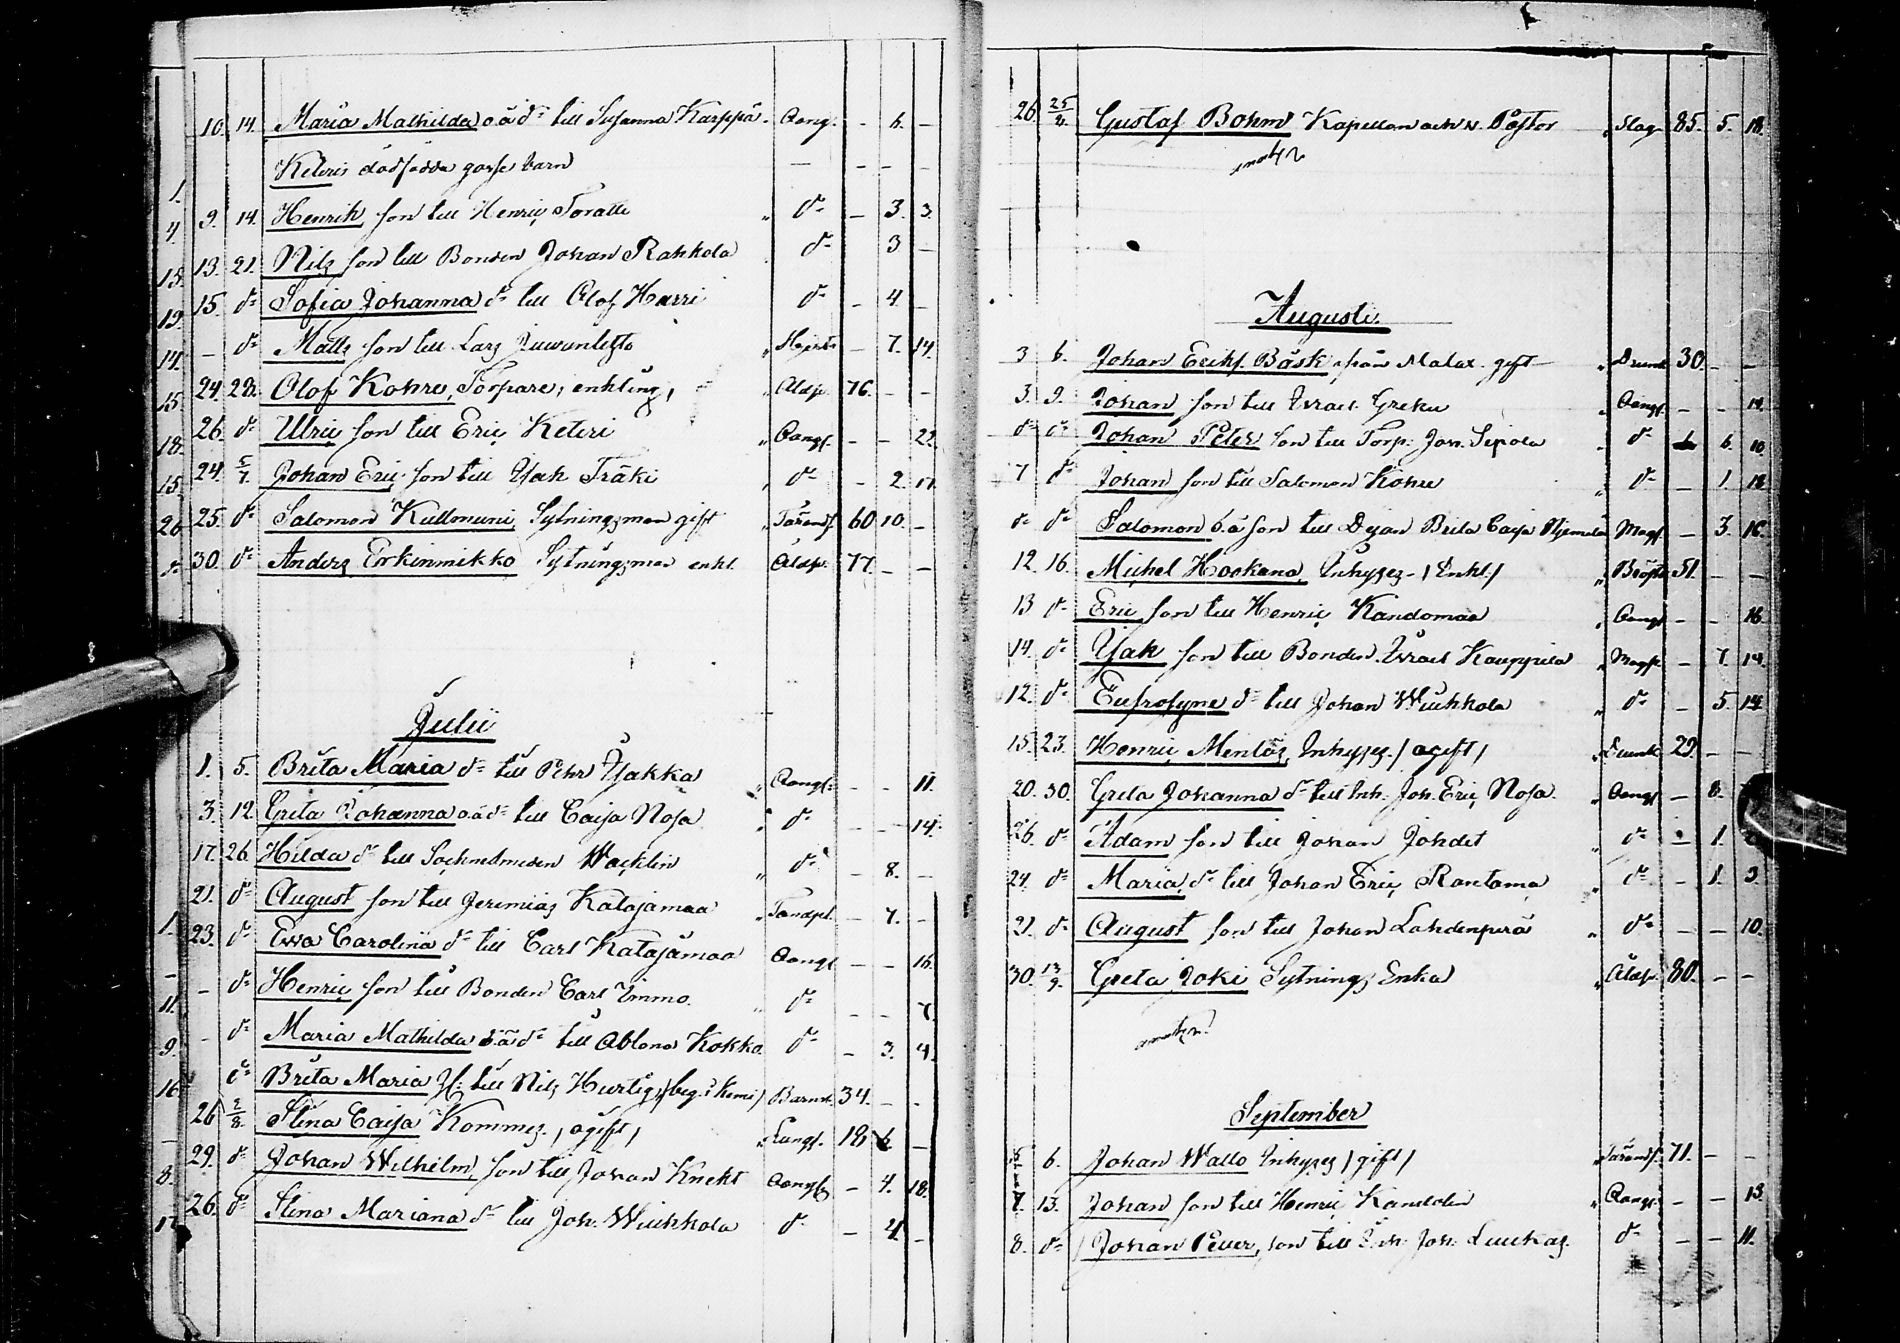 10. 14. Maria Mathilda o.ä dr till Susanna Karppa. Aang. - 6. -
Keteris dödfödda gosse barn - - -
1.
4. 9. 14. Henrik son till Henric Toratti " do - 3. 3.
18. 13. 21. Nils son till Bonden Johan Rahkola do 3 -
19. 15. do Sofia Johanna dr till Olof Harri do - 4. -
14. - do Matts son till Lars - 7. 14.
15. 24. 28. Olof Kohre, Torpare, enkling, " Aldp. 76. - -
18. 26. do Ulric son till Eric Keteri " Aangf. - - 22.
15. 24. 5/7. Johan Eric son till Isak Träki " do - 2. 11.
20. 25. do Salomon Kullmuni, Sytningsman gift " 60 10. -
do 30. do Anders Erkinmikko Sytningsman enkl. Aldp. 77. - -
Julii
1. 5. Brita Maria dr till Pehr Isakka " Aangf. - - 11.
3. 12. Greta Johanna o.ä dr till Caisa Nosa " do - - 14.
17. 26. Hilda dr till SockneDmeden Wacklin " do - 8. -
21. do August son till Jeremias Katajamaa " Tandpl. - 7. -
1. 23. do Ewa Carolina dr till Carl Katajamaa Aangf - - 16.
- - do Henric son till Bonden Carl Immo. " do - - 7.
11. - do Maria Mathilda o.ä dr till Ablona Kokko. do - 3. 4.
9. do Brita Maria H: till Nils Hurtig, /beg. i Kemi/ Barns. 34. - -
16. 26 2/8. Stina Caisa Kommes. /ogift/ " Lungf. 18 6 -
- 29. do Johan Wilhelm, son till Johan Knekt Aangf. - 4. 18.
8. 26. do Stina Mariana dr till Joh. Wiukkola do - 4. -
17.
26. 25/8. Gustaf Bohm Kapellan och v. Pastor " Slag 85. 5. 18.
Augusti.
3 6. Johan Erikss. Bäsk från Malax. gift " Drunk 30. - -
3. 9. Johan son till Israel Greku " Aangf. - - 14.
do do Johan Peter son till Torp. Joh. Sipola " do 6. 10
7 do Johan son till Salomon Kohre " do - 1. 12
do do Salomon o.ä son till Dejan Brita Caisa Magf. - 3. 16.
12. 16. Michel Hookana, Inhyses - /Enkl./ " Bröst 51. - -
13 do Eric son till Henric Kandomaa " Aangf - - 16.
14. do Isak son till Bonden Israel Kauppila " Magf - 7. 14.
12. do Eufrosyne dr till Johan Wiukkola " do - 5. 14.
15. 23. Henric Mentös, Inhyses. /ogift/ " Drunk 29. - -
20. 30. Greta Johanna dr till Inh. Joh. Eric Nosa. " Aangf - 8.
26. do Adam son till Johan Johdet " do - 1.
24. do Maria, dr till Johan Eric Rantama " do - 1. 3.
21. do August son till Johan Lahdenperä " do - - 10.
30. 13/9. Greta Joki Sytnings Enka " Aldp. 80. - -
September
5 6. Johan Wallo Inhyses /gift/ " 71. - -
7. 13. Johan son till Henric Kandelin " Aangf. - - 13.
8. do Johan Petter, son till Inh. Joh. Luukas. do - - 11.